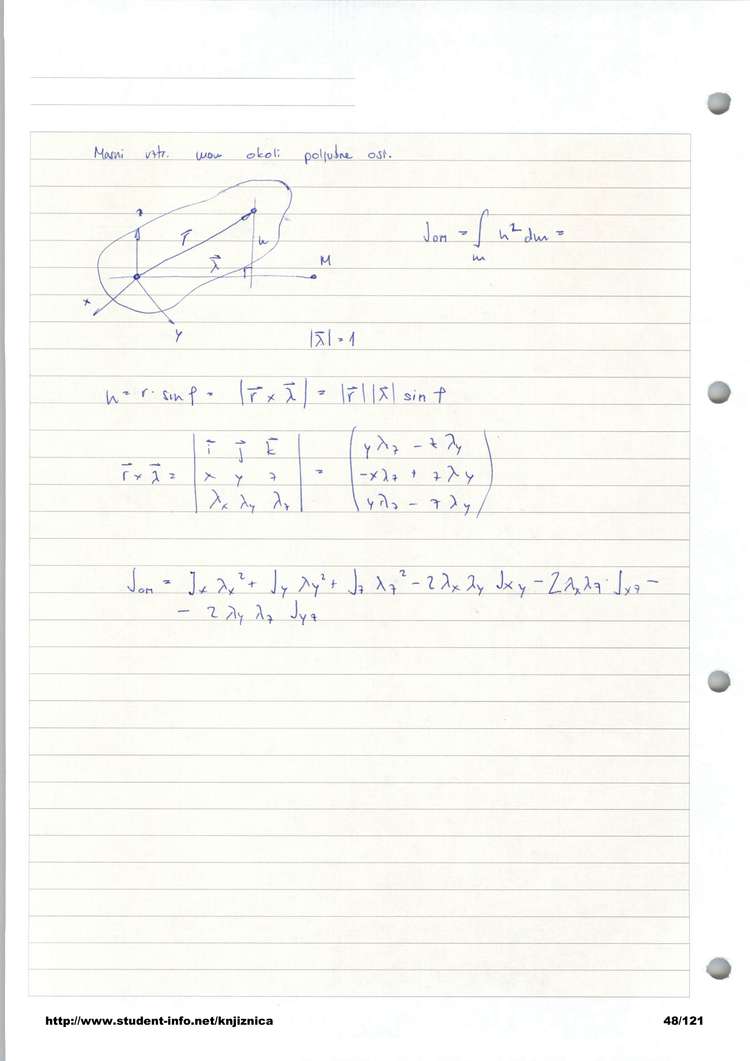 Masni vztr. mom okoli poljubne osi.
z
r⃗
h
λ⃗
M
x
y
J_OM = ∫_m h² dm =
|λ⃗| = 1
h = r · sin φ = |r⃗ × λ⃗| = |r⃗| |λ⃗| sin φ
r⃗ × λ⃗ = | i⃗ j⃗ k⃗ | = ( yλz − zλy )
| x y z | ( −xλz + zλy )
| λx λy λz | ( yλz − zλy )
J_OM = Jx λx² + Jy λy² + Jz λz² − 2 λx λy Jxy − 2 λx λz · Jxz −
− 2 λy λz Jyz
http://www.student-info.net/knjiznica 48/121